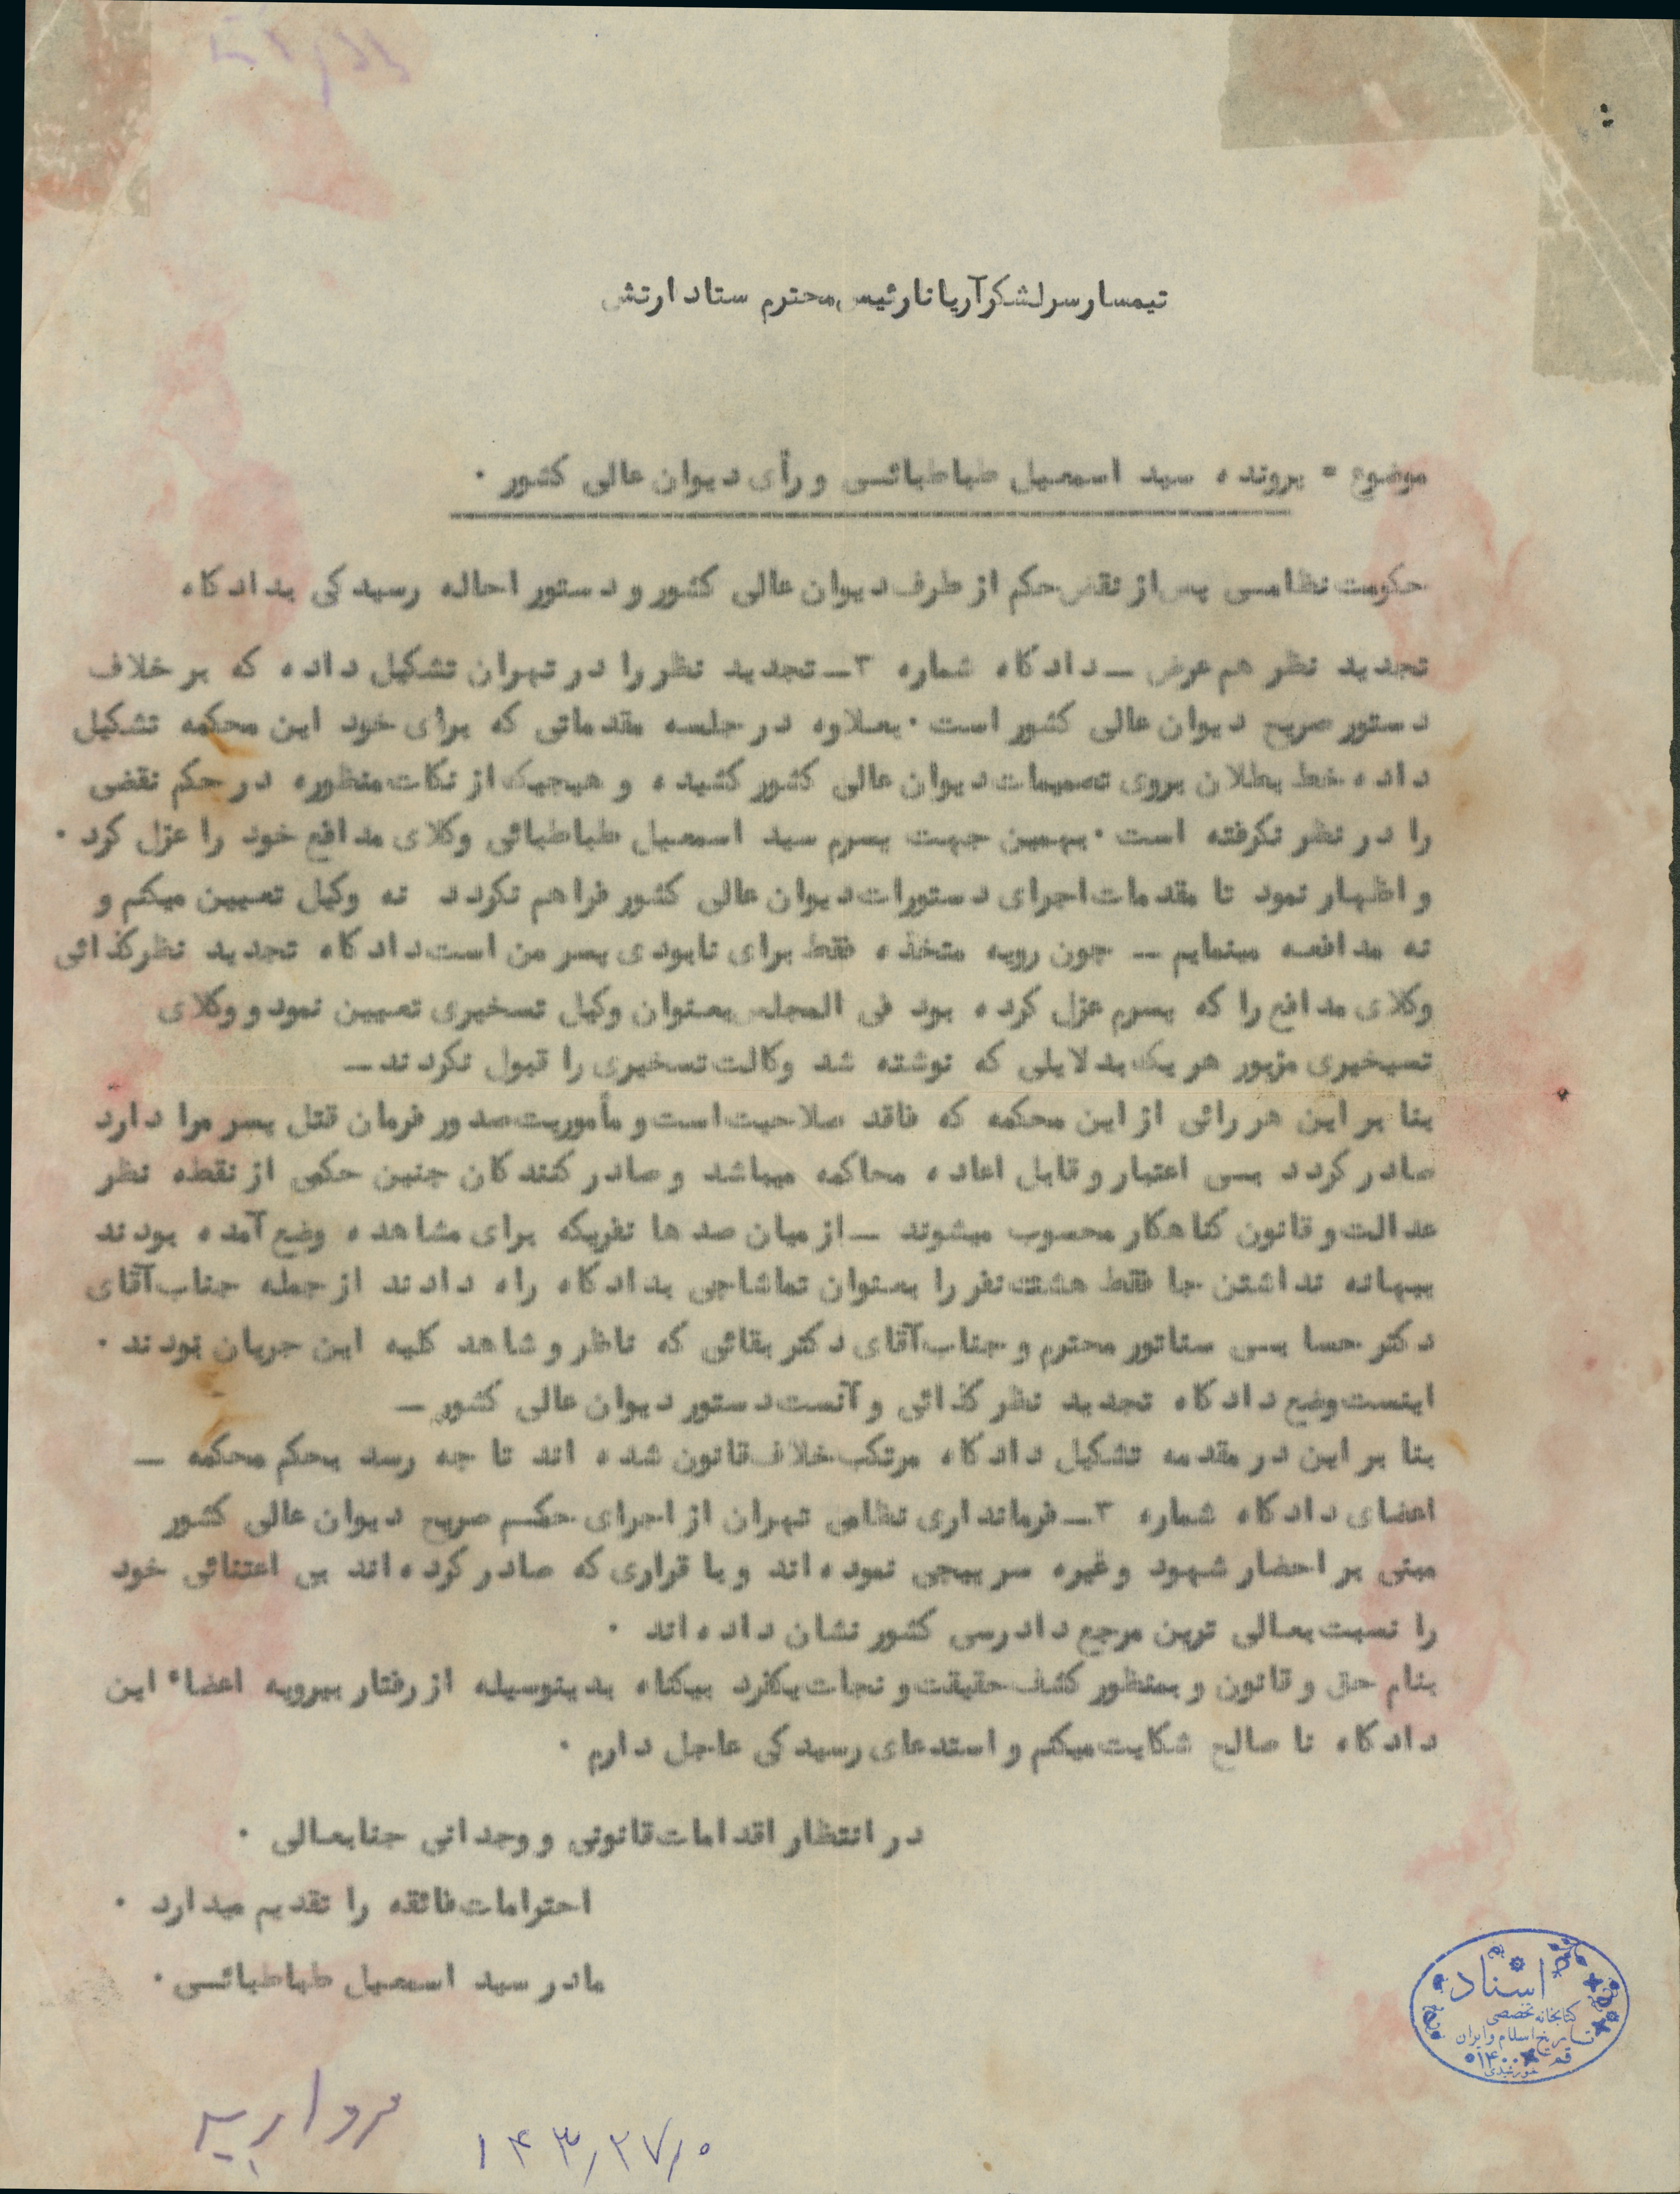 تیمسار سرلشکر آریانا رئیس محترم ستاد ارتش
موضوع = پرونده سید اسمعیل طباطبائی و رأی دیوان عالی کشور .
حکومت نظامی پس از نقض حکم از طرف دیوان عالی کشور و دستور احاله رسیدگی بدادگاه
تجدید نظر هم عرض ــ دادگاه شماره ۳ــ تجدید نظر را در تهران تشکیل داده که بر خلاف
دستور صریح دیوان عالی کشور است . بعلاوه در جلسه مقدماتی که برای خود این محکمه تشکیل
داده خط بطلان بروی تصمیمات دیوان عالی کشور کشیده و هیچیک از نکات منظوره در حکم نقضی
را در نظر نگرفته است . بهمین جهت پسرم سید اسمعیل طباطبائی وکلای مدافع خود را عزل کرد .
و اظهار نمود تا مقدمات اجرای دستورات دیوان عالی کشور فراهم نگردد نه وکیل تعیین میکنم و
نه مدافعه مینمایم ــ چون رویه متخذه فقط برای نابودی پسر من است دادگاه تجدید نظر کذائی
وکلای مدافع را که پسرم عزل کرده بود فی المجلس بعنوان وکیل تسخیری تعیین نمود و وکلای
تسیخیری مزبور هر یک بدلایلی که نوشته شد وکالت تسخیری را قبول نکردند ــ
بنا بر این هر رائی از این محکمه که فاقد صلاحیت است و مأموریت صدور فرمان قتل پسر مرا دارد
صادر گردد بی اعتبار و قابل اعاده محاکمه میباشد و صادر کنندگان چنین حکمی از نقطه نظر
عدالت و قانون گناهکار محسوب میشوند ــ از میان صدها نفریکه برای مشاهده وضع آمده بودند
ببهانه نداشتن جا فقط هشت نفر را بعنوان تماشاچی بدادگاه راه دادند از جمله جناب آقای
دکتر حسابی سناتور محترم و جناب آقای دکتر بقائی که ناظر و شاهد کلیه این جریان بودند .
اینست وضع دادگاه تجدید نظر کذائی و آنست دستور دیوان عالی کشور ــ
بنا بر این در مقدمه تشکیل دادگاه مرتکب خلاف قانون شده اند تا چه رسد بحکم محکمه ــ
اعضای دادگاه شماره ۳ــ فرمانداری نظامی تهران از اجرای حکم صریح دیوان عالی کشور
مبنی بر احضار شهود و غیره سرپیچی نموده اند و با قراری که صادر کرده اند بی اعتنائی خود
را نسبت بعالی ترین مرجع دادرسی کشور نشان داده اند .
بنام حق و قانون و بمنظور کشف حقیقت و نجات یکفرد بیگناه بدینوسیله از رفتار بیرویه اعضاء این
دادگاه نا صالح شکایت میکنم و استدعای رسیدگی عاجل دارم .
در انتظار اقدامات قانونی و وجدانی جنابعالی .
احترامات فائقه را تقدیم میدارد .
مادر سید اسمعیل طباطبائی .
اسناد
کتابخانه تخصصی
تاریخ اسلام و ایران
قم
۱۴۰۰
خورشیدی
۱۴۳/۲۷/۰